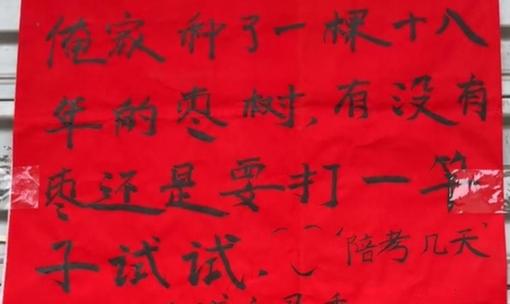 俺家种了一棵十八
年的枣树,有没有
枣还是要打一竿
子试试.
"陪考几天"